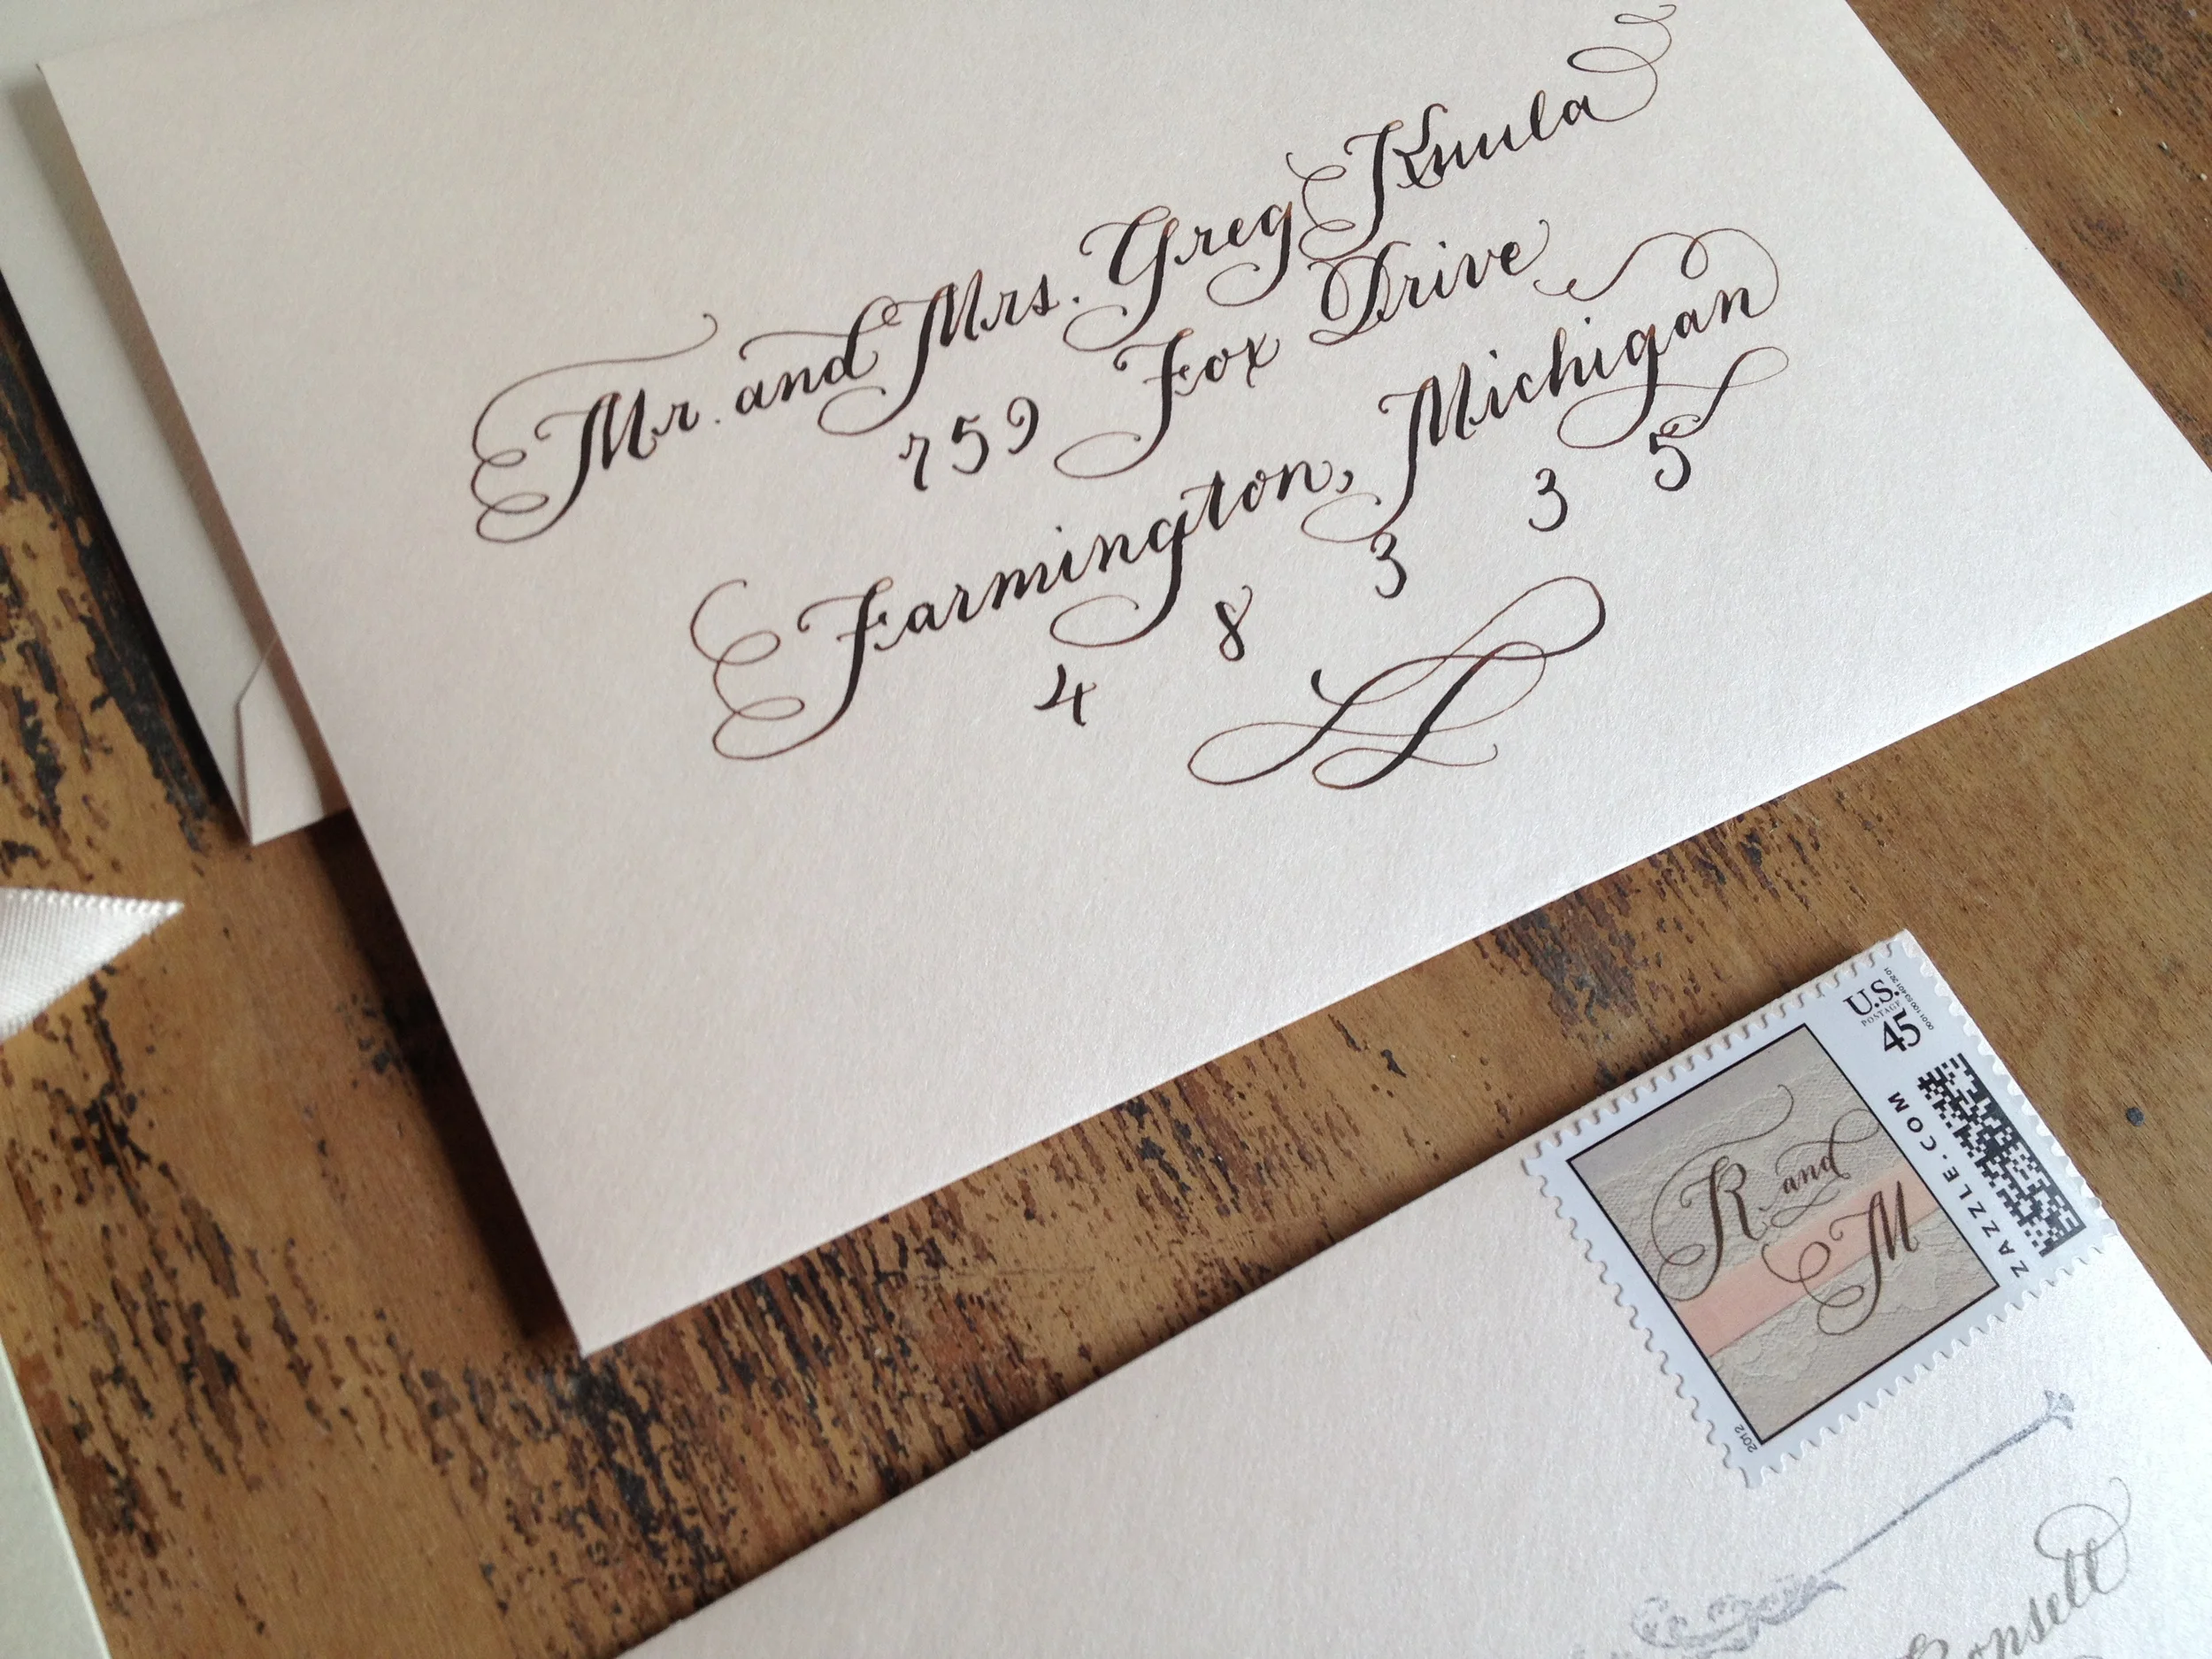 Mr. and Mrs. Greg Knula
759 Fox Drive
Farmington, Michigan
4 8 3 3 5
U.S.
POSTAGE
45
ZAZZLE.COM
R and
M
2012